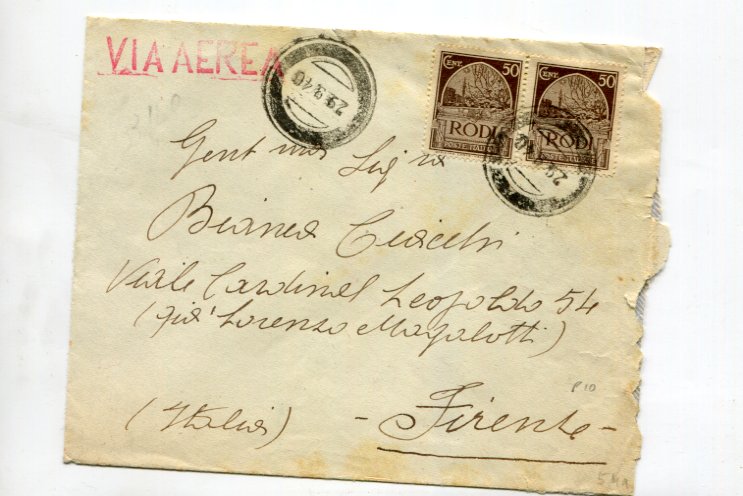 VIA AEREA
29.9.40
CENT. 50
RODI
POSTE ITALIANE
CENT. 50
RODI
POSTE ITALIANE
29. 40
Gent ma Sig na
Bianca
Viale Cardinal Leopoldo 54
(già Lorenzo Magalotti)
P 10
(Italia) - Firenze -